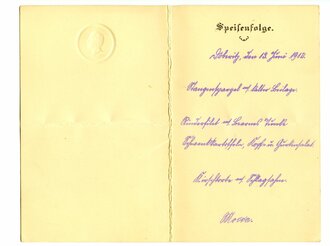 Speisenfolge.
Döberitz, den 13. Juni 1913.
Stangenspargel mit kalter Beilage.
Rinderfilet mit Tunke
Schwenkkartoffeln, Kopf- u. Gurkensalat
Kirschtorte mit Schlagsahne.
Mocca.